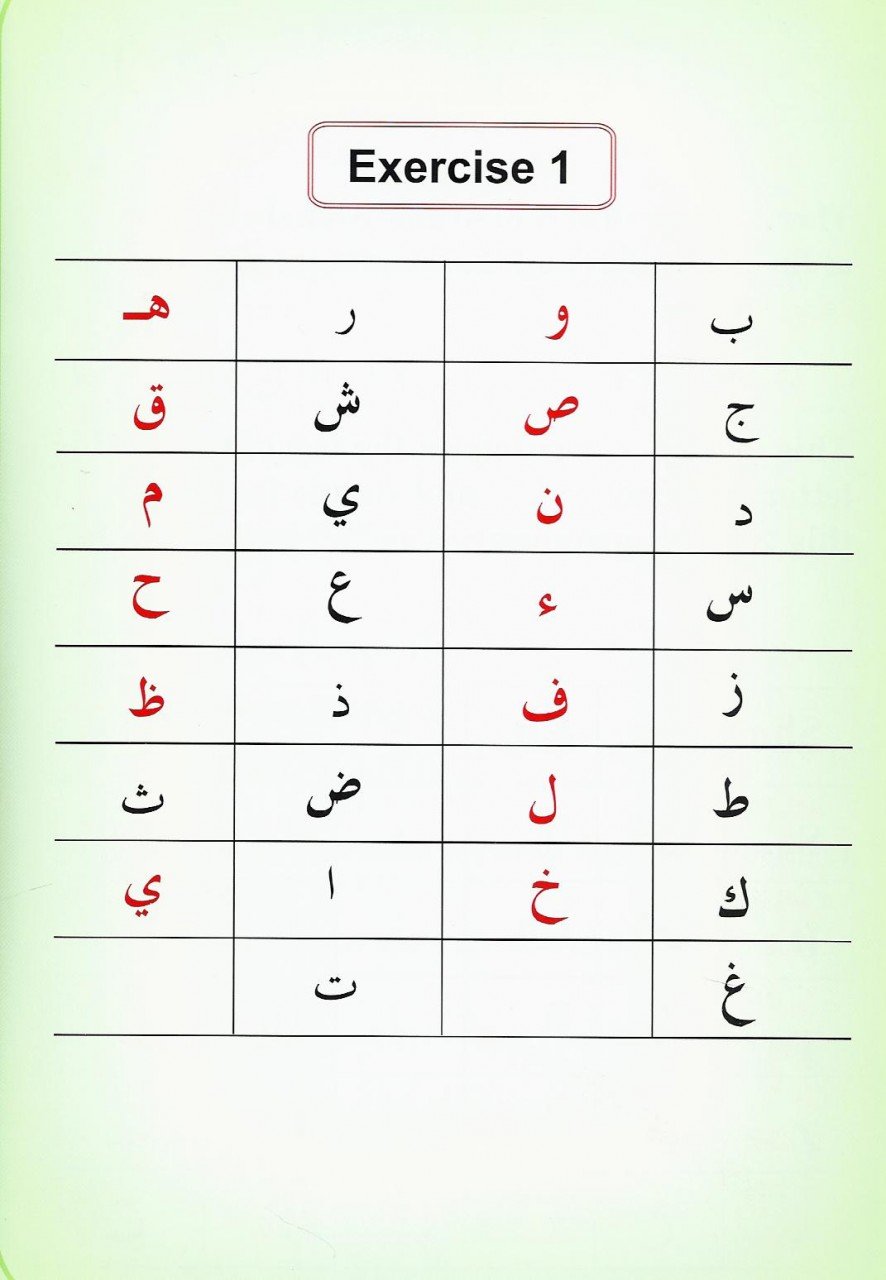 Exercise 1
ب و ر هـ
ج ص ش ق
د ن ي م
س ء ع ح
ز ف ذ ظ
ط ل ض ث
ك خ ا ي
غ ت